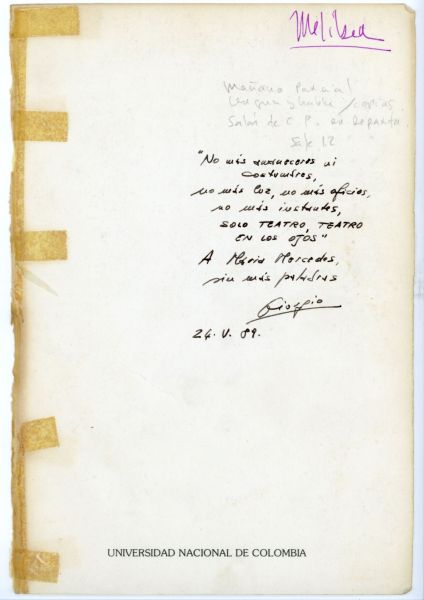 Melibea
Mañana Parcial
Lengua y habla / copias
Salón de C. P. en Departa
"No más amaneceres ni
costumbres,
no más luz, no más oficios,
no más instantes,
SOLO TEATRO, TEATRO
EN LOS OJOS"
A María Mercedes,
sin más palabras
Giorgio
24. V. 89.
UNIVERSIDAD NACIONAL DE COLOMBIA